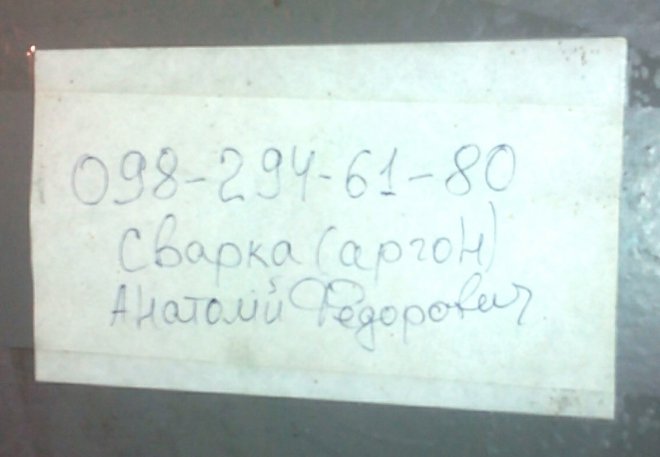 098-294-61-80
Сварка (аргон)
Анатолий Федорович